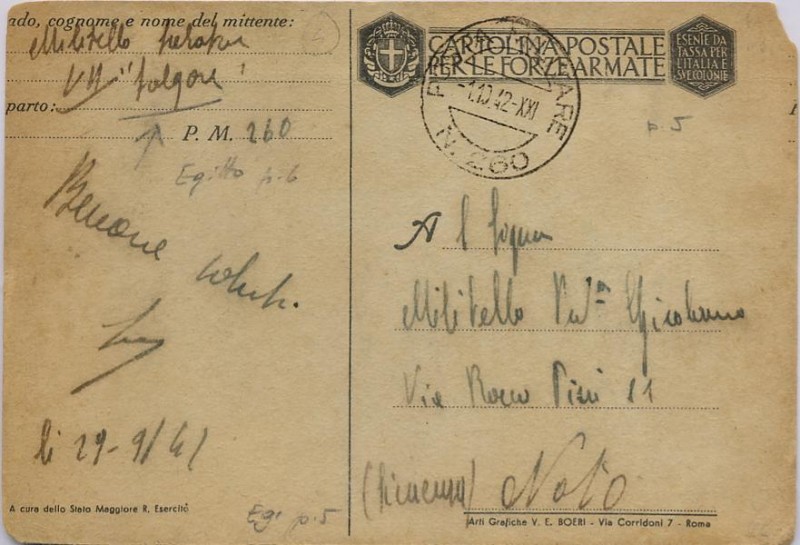 ado, cognome e nome del mittente:
Militello
VII "Folgore"
parto:
P. M. 260
Egitto p.6
Benone
saluti.
li 29-9/42
A cura dello Stato Maggiore R. Esercito
Egi p.5
CARTOLINA POSTALE
PER LE FORZE ARMATE
ESENTE DA
TASSA PER
L'ITALIA E
SVE COLONIE
POSTA MILITARE
-1.10.42-XXI
N. 260
p.5
A l Signor
Militello
Via Rocco Pirri 11
(Siracusa) Noto
Arti Grafiche V. E. BOERI - Via Corridoni 7 - Roma